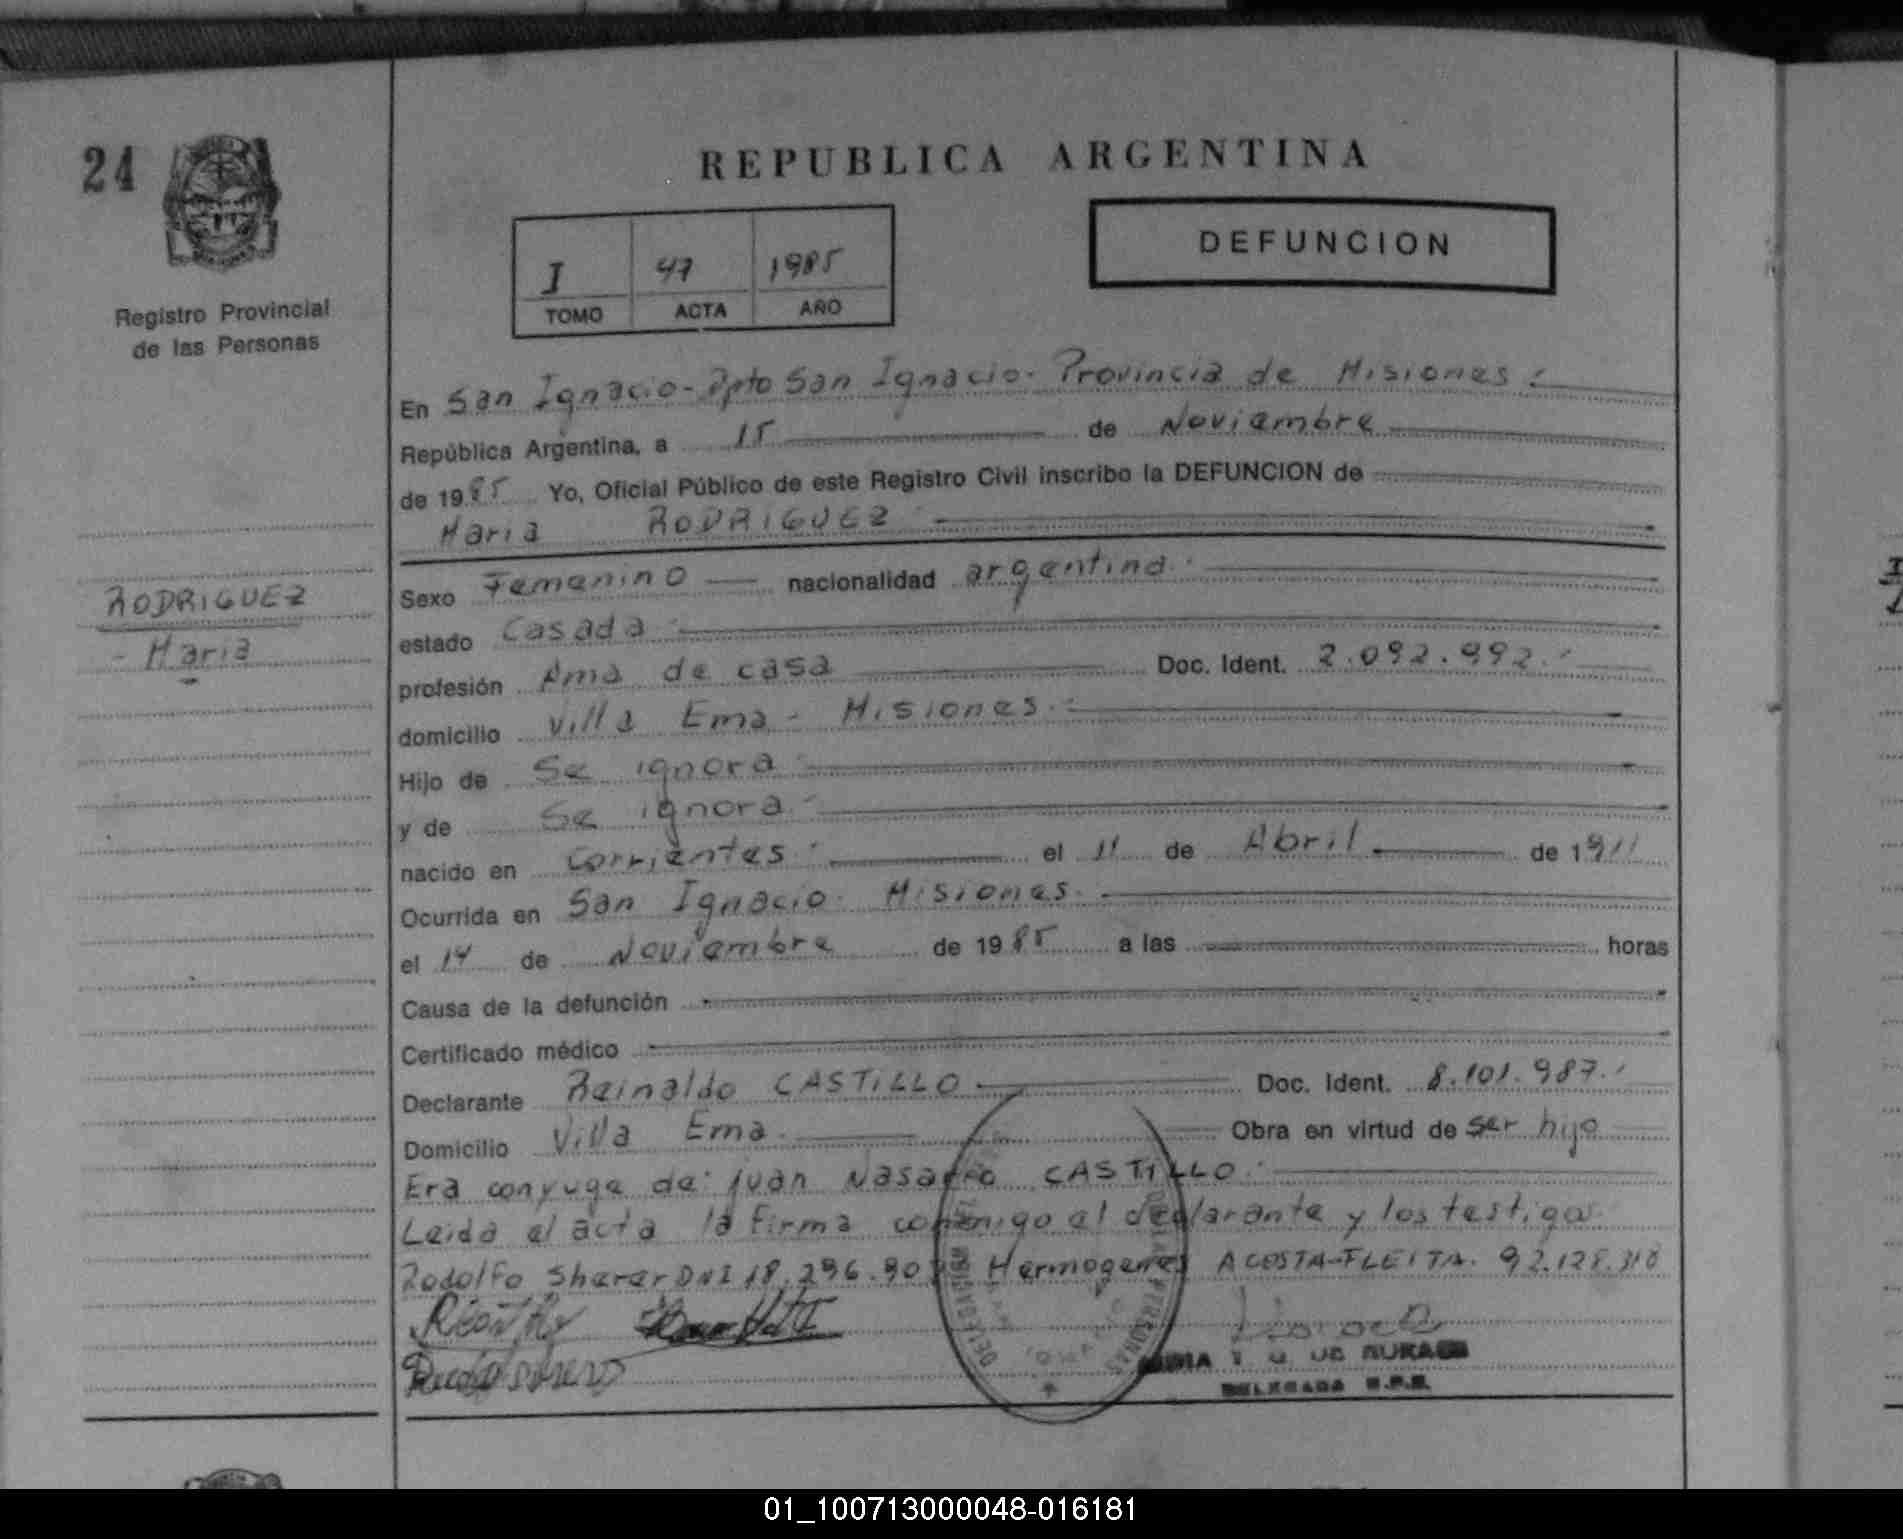 24
Registro Provincial
de las Personas
REPUBLICA ARGENTINA
I 47 1985
TOMO ACTA AÑO
DEFUNCION
En San Ignacio - Dpto San Ignacio - Provincia de Misiones
República Argentina, a 15 de Noviembre
de 1985 Yo, Oficial Público de este Registro Civil inscribo la DEFUNCION de
Maria RODRIGUEZ
RODRIGUEZ
- Maria
Sexo Femenino nacionalidad argentina
estado Casada
profesión Ama de casa Doc. Ident. 2.092.992
domicilio Villa Ema - Misiones
Hijo de Se ignora
y de Se ignora
nacido en Corrientes el 11 de Abril de 1911
Ocurrida en San Ignacio - Misiones
el 14 de Noviembre de 1985 a las horas
Causa de la defunción
Certificado médico
Declarante Reinaldo CASTILLO Doc. Ident. 8.101.987
Domicilio Villa Ema Obra en virtud de ser hijo
Era conyuge de: Juan Nasario CASTILLO
Leida el acta la firma conmigo el declarante y los testigos
Rodolfo Sherer DNI 18.296.90 Hermogenes ACOSTA-FLEITA. 92.128.318
DE LAS PERSONAS
DELEGADA R.P.P.
01_100713000048-016181